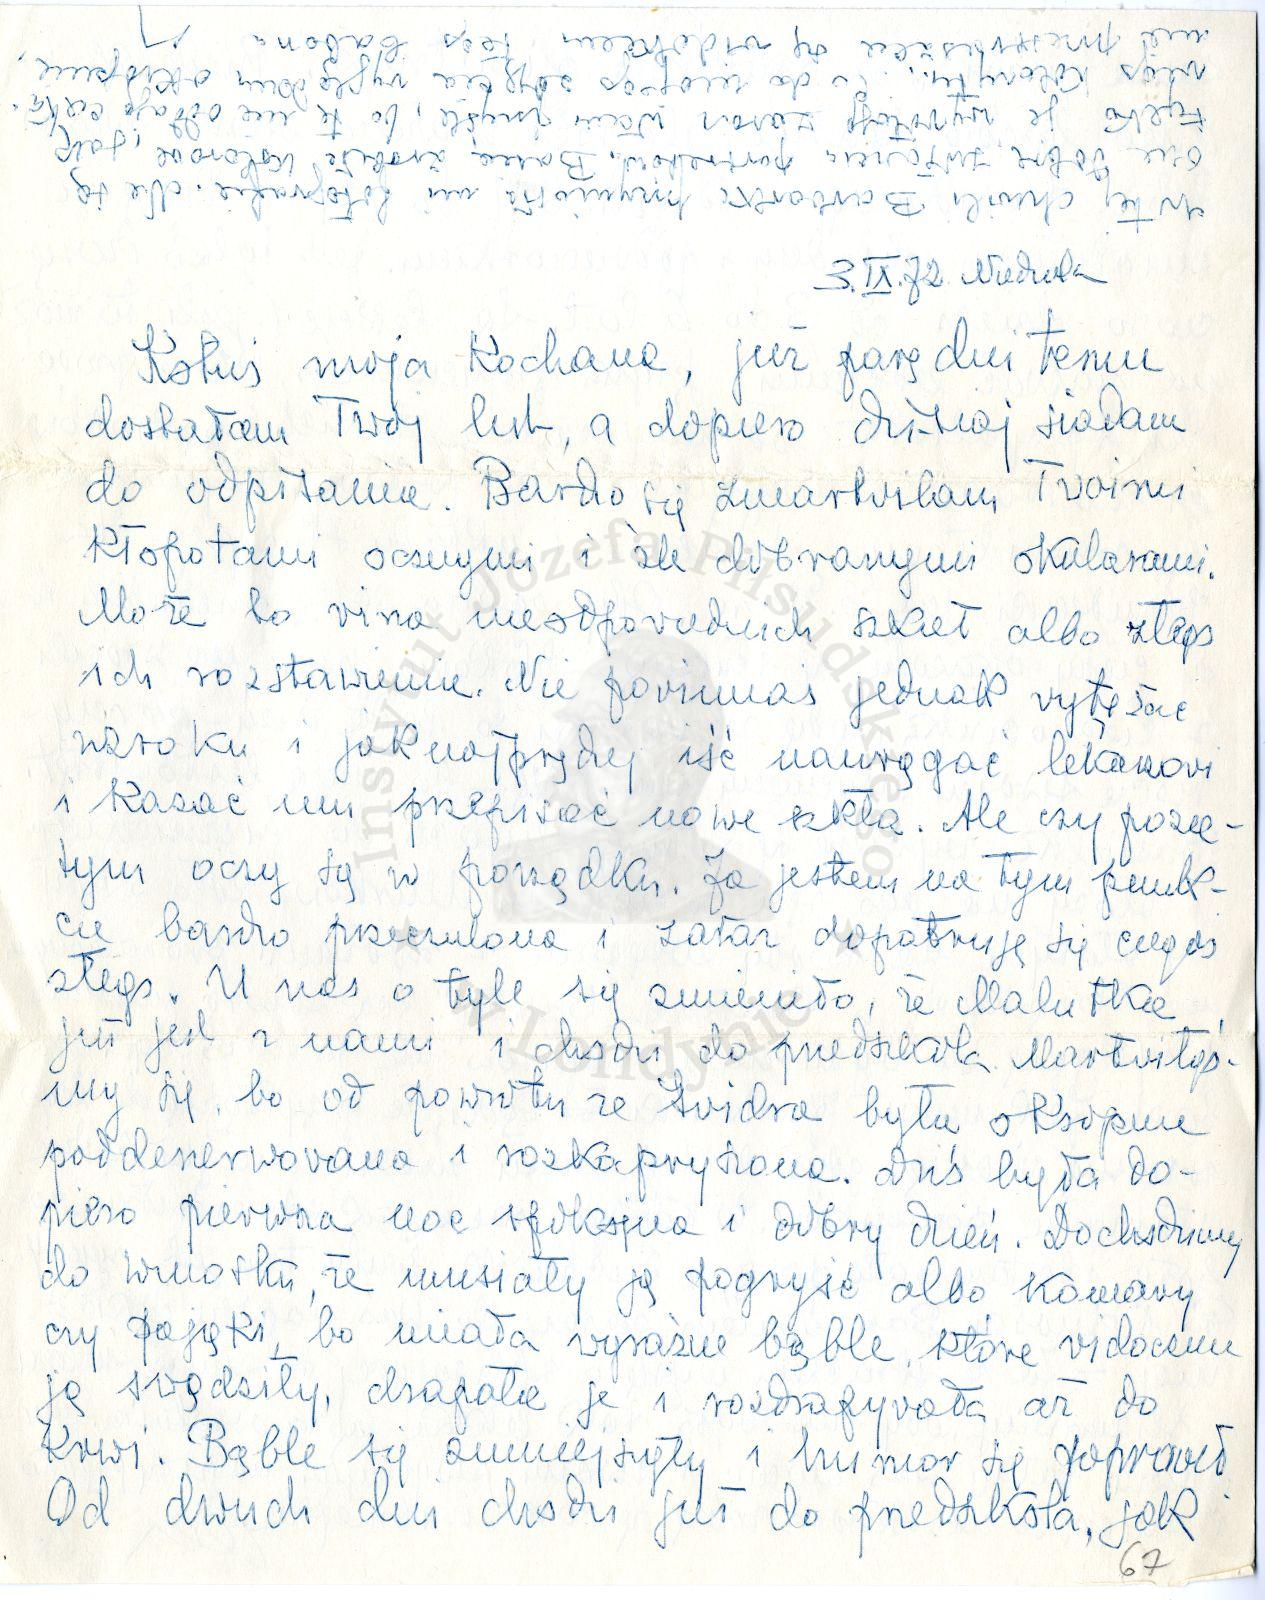 W tej chwili Barbarka przyniosła mi fotografie. Nie są
one dobre, zwłaszcza portretów. Basia zrobiła kolorowe, jak
tylko je wywołają zaraz Wam wyślę, bo te nie oddają
3.IX.72 Niedziela
Kotuś moja Kochana, już parę dni temu
dostałam Twój list, a dopiero dzisiaj siadam
do odpisania. Bardzo się zmartwiłam Twoimi
kłopotami ocznymi i źle dobranymi okularami.
Może to wina nieodpowiednich szkieł albo złego
ich rozstawienia. Nie powinnaś jednak wytężać
wzroku i jak najprędzej iść nawrzgać lekarzowi
i kazać mu przepisać nowe szkła. Ale czy poza-
tym oczy są w porządku. Ja jestem na tym punk-
cie bardzo przeczulona i zaraz dopatruję się czegoś
złego. U nas o tyle się zmieniło, że Malutka
już jest z nami i chodzi do przedszkola. Martwiłyś-
my się, bo od powrotu ze Świdra była okropnie
poddenerwowana i rozkapryszona. Dziś była do-
piero pierwsza noc spokojna i dobry dzień. Dochodzimy
do wniosku, że musiały ją pogryźć albo komary
czy pająki, bo miała wyraźne bąble, które widocznie
ją swędziły, drapała je i rozdrapywała aż do
krwi. Bąble się zmniejszyły i humor się poprawił
Od dwuch dni chodzi już do przedszkola, jak
67
Instytut Józefa Piłsudskiego
w Londynie